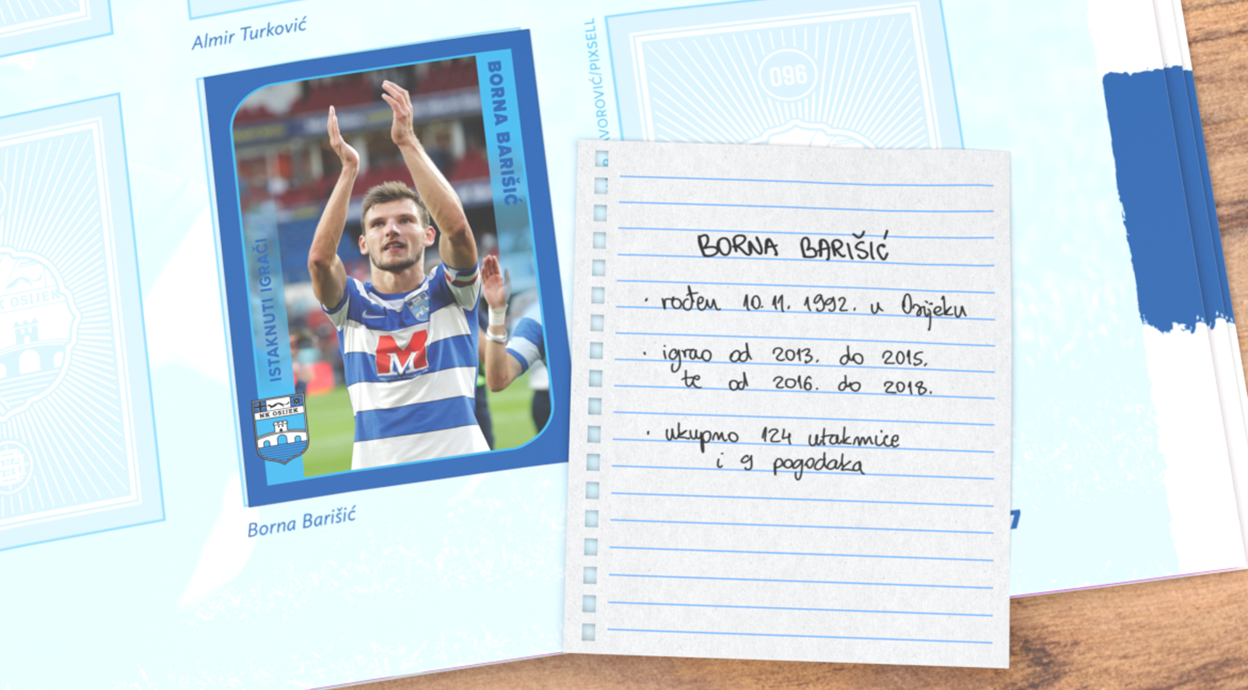 Almir Turković
BORNA BARIŠIĆ
ISTAKNUTI IGRAČI
NK OSIJEK
M
Borna Barišić
K OSIJEK
VOROVIĆ/PIXSELL
096
BORNA BARIŠIĆ
· rođen 10. 11. 1992. u Osijeku
· igrao od 2013. do 2015.
te od 2016. do 2018.
· ukupno 124 utakmice
i 9 pogodaka